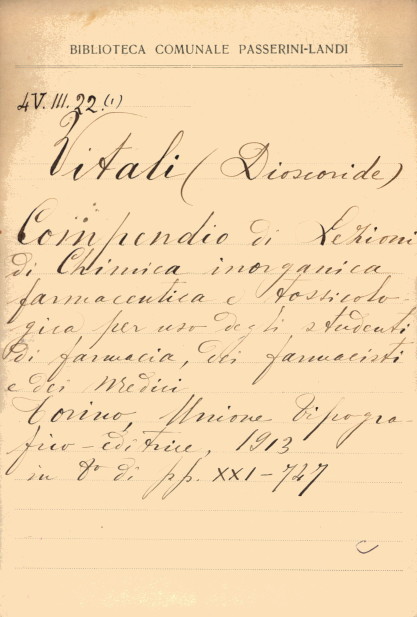 BIBLIOTECA COMUNALE PASSERINI-LANDI
4V.III.22.(1)
Vitali (Dioscoride)
Compendio di Lezioni
di Chimica inorganica
farmaceutica e tossicolo-
gica per uso degli studenti
di farmacia, dei farmacisti
e dei medici
Torino, Unione Tipogra-
fico-editrice, 1913
in 8° di pp. XXI-727